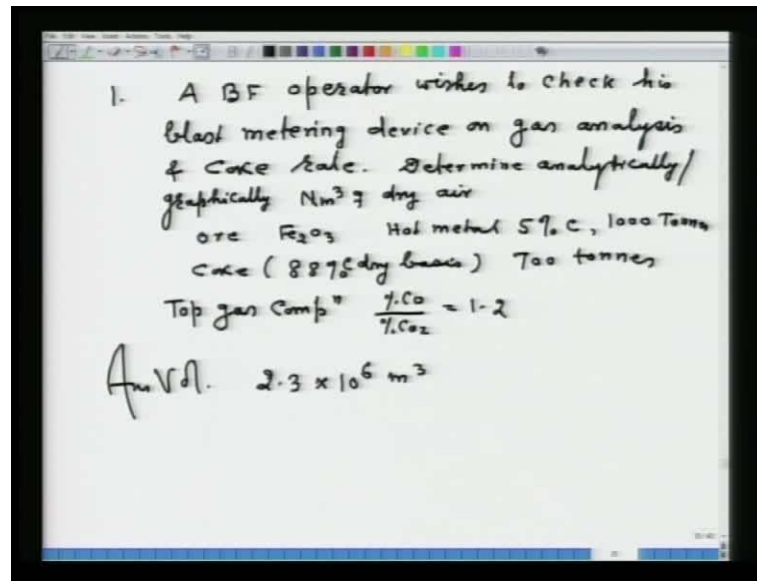 1. A BF operator wishes to check his
blast metering device on gas analysis
& Coke rate. Determine analytically/
graphically Nm³ of dry air
ore Fe₂O₃ Hot metal 5% C, 1000 Tonnes
Coke (88% C dry basis) 700 tonnes
Top gas Compⁿ %CO/%CO₂ = 1.2
Ans Vol. 2.3 × 10⁶ m³